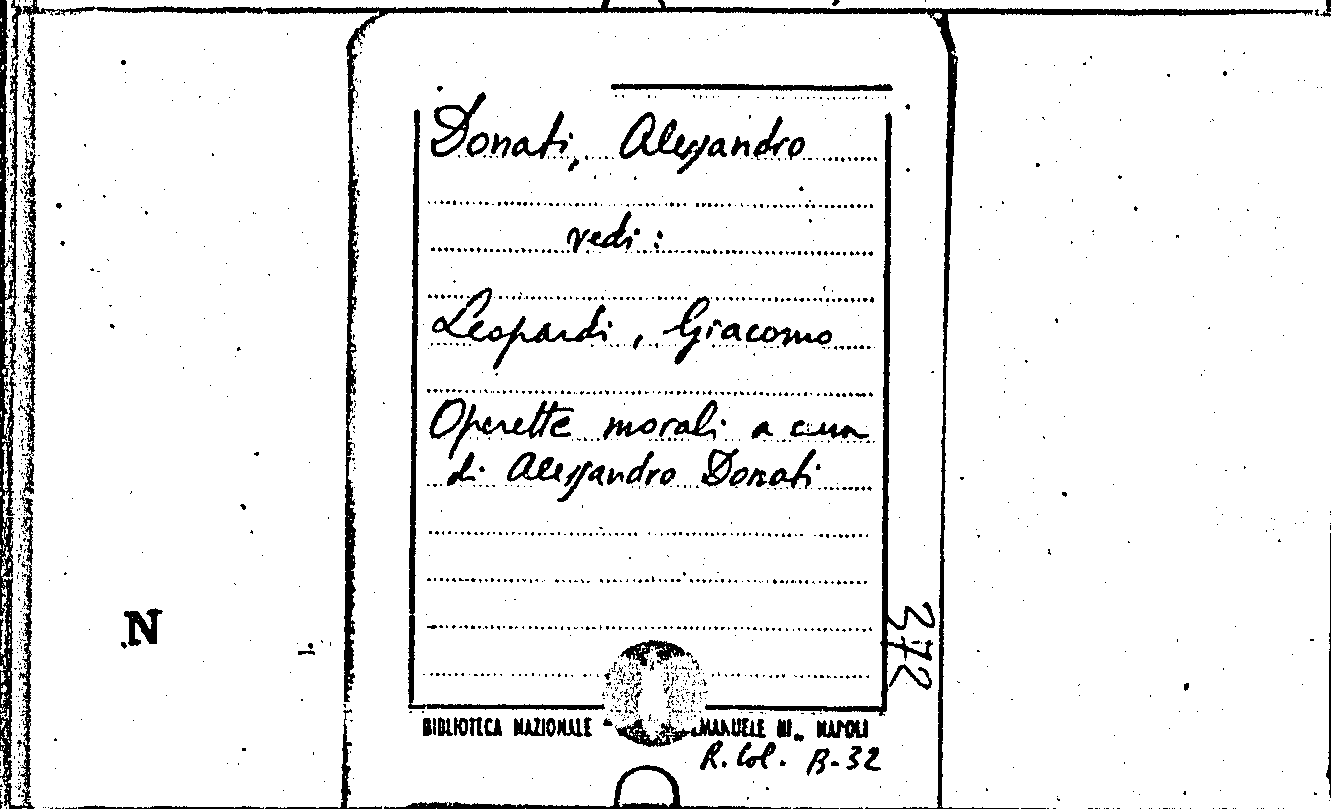 Donati, Alessandro
vedi:
Leopardi, Giacomo
Operette morali a cura
di Alessandro Donati
372
N
BIBLIOTECA NAZIONALE "
EMANUELE III„ NAPOLI
R. Col. B-32